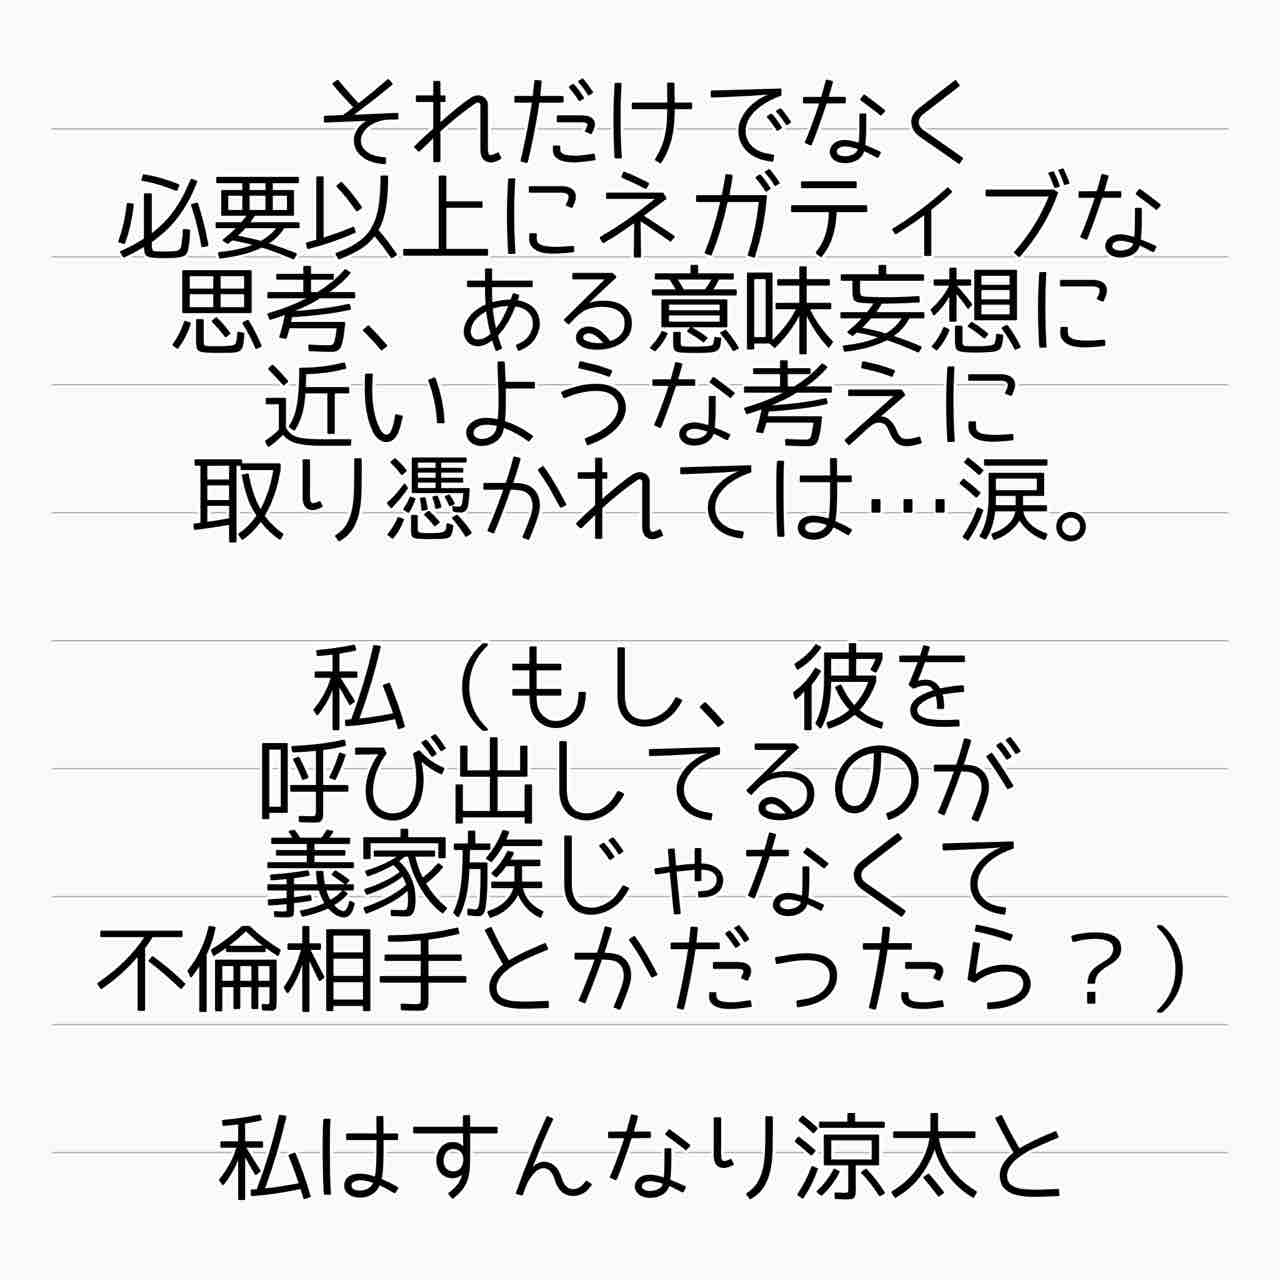 それだけでなく
必要以上にネガティブな
思考、ある意味妄想に
近いような考えに
取り憑かれては…涙。
私（もし、彼を
呼び出してるのが
義家族じゃなくて
不倫相手とかだったら？）
私はすんなり涼太と